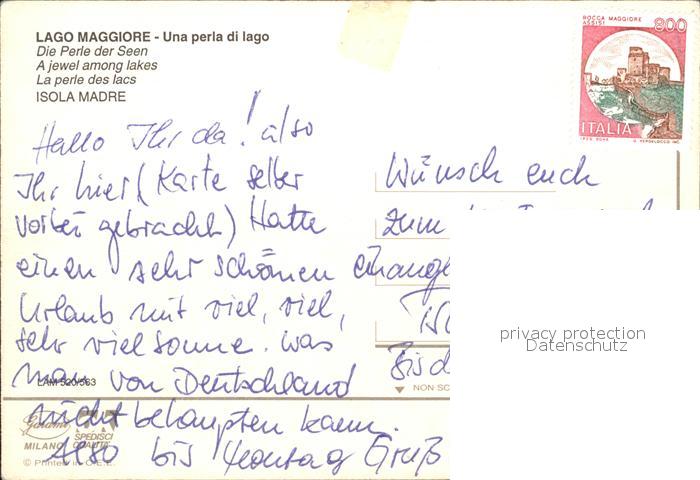 LAGO MAGGIORE - Una perla di lago
Die Perle der Seen
A jewel among lakes
La perle des lacs
ISOLA MADRE
ROCCA MAGGIORE
ASSISI
800
ITALIA
Hallo Ihr da! also
Ihr hier (Karte selber
vorbei gebracht) Hatte
einen sehr schönen
Urlaub mit viel, viel,
sehr viel Sonne. was
man von Deutschland
nicht behaupten kann.
Also bis Montag Gruß
Wünsch euch
zum
Bisd
LAM 520/563
NON SC
Garami
MILANO
SPEDISCI
QUALITA'
© Printed in C.E.E.
privacy protection
Datenschutz